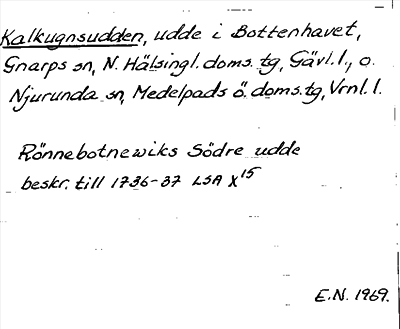 Kalkugnsudden, udde i Bottenhavet,
Gnarps sn, N. Hälsingl. doms. tg, Gävl. l., o.
Njurunda sn, Medelpads ö. doms. tg, Vrnl. l.
Rönnebotnewiks Södre udde
beskr. till 1736-37 LSA X15
E.N. 1969.